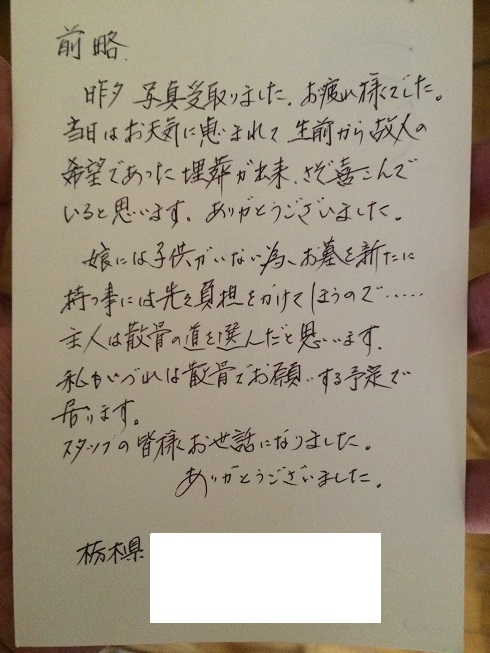 前略
昨夕 写真受取りました。お疲れ様でした。
当日はお天気に恵まれて 生前から故人の
希望であった埋葬が出来、さぞ喜こんで
いると思います。ありがとうございました。
娘には子供がいない為、お墓を新たに
持つ事には先々負担をかけてしまうので……
主人は散骨の道を選んだと思います。
私もいづれは散骨でお願いする予定で
居ります。
スタッフの皆様お世話になりました。
ありがとうございました。
栃木県